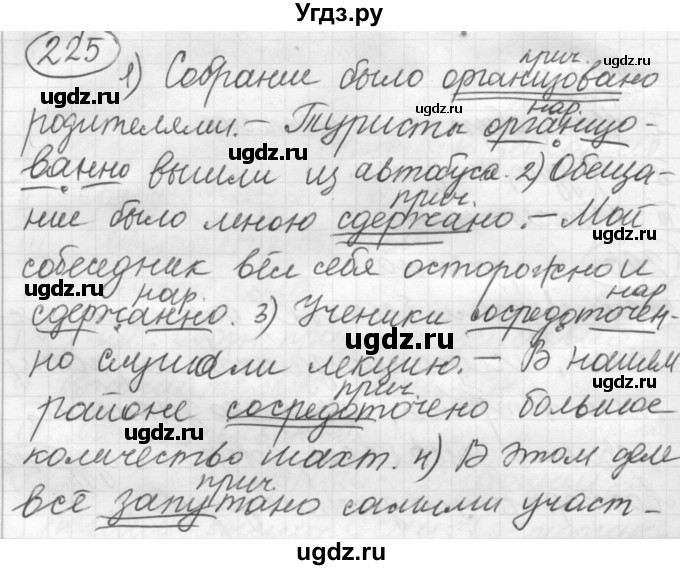 Угдз.ру
225
прич.
1) Собрание было организовано
нар.
родителями. – Туристы организо-
ванно вышли из автобуса. 2) Обеща-
прич.
ние было мною сдержано. – Мой
собеседник вёл себя осторожно и
нар. нар
сдержанно. 3) Ученики сосредоточен-
но слушали лекцию. – В нашем
прич.
районе сосредоточено большое
количество шахт. 4) В этом деле
прич.
всё запутано самими участ-
ugdz.ru
ugdz.ru
ugdz.ru
ugdz.ru
ugdz.ru
ugdz.ru
ugdz.ru
ugdz.ru
ugdz.ru
ugdz.ru
ugdz.ru
ugdz.ru
ugdz.ru